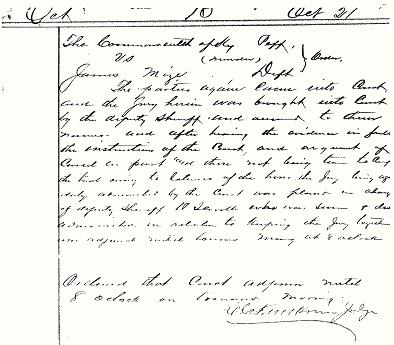 Oct 10 Oct 21
The Commonwealth of Ky Pltff.
vs (murder) } Order.
James Mize Deft
The parties again came into Court
and the Jury herein was brought into Court
by the deputy Sheriff and answered to their
names. and after hearing the evidence in full
the instructions of the Court, and argument of
Counsel in part and there not being time to
the trial owing to lateness of the hour the Jury being
duly admonished by the Court was placed in
of deputy Sheriff who was sworn &
admonished in relation to keeping the Jury together
was adjourned until tomorrow morning at 8 oclock
Ordered that Court adjourn until
8 oclock on tomorrow morning
Judge